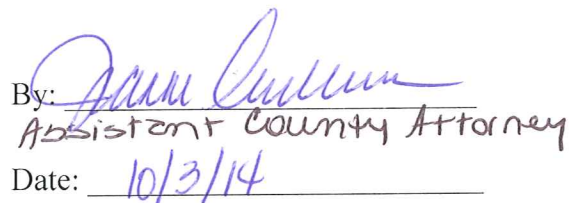 By:
Assistant County Attorney
Date: 10/3/14